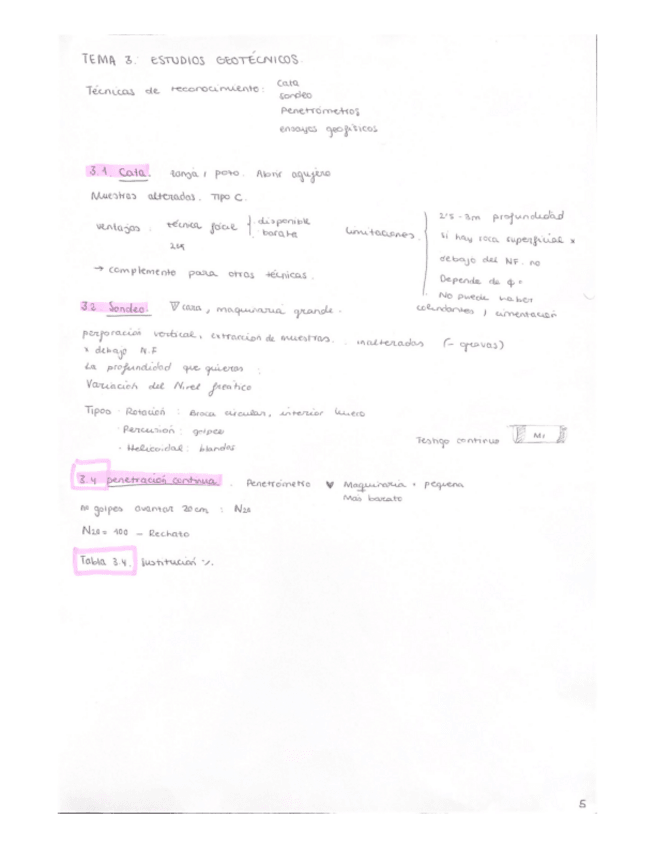 TEMA 3. ESTUDIOS GEOTÉCNICOS.
Técnicas de reconocimiento: Cata
sondeo
Penetrómetros
ensayos geofísicos
3.1 Cata. zanja / pozo. Abrir agujero
Muestras alteradas. Tipo C.
ventajas. técnica fácil { disponible
barata
→ complemento para otras técnicas.
limitaciones.
2'5 - 3m profundidad
si hay roca superficial x
debajo del NF. no
Depende de
No puede haber
colindantes / cimentación
3.2 Sondeo. ∇ cara, maquinaria grande.
perforación vertical, extracción de muestras. inalteradas (- gravas)
x debajo N.F
La profundidad que quieras
Variación del Nivel freático
Tipos · Rotación : Broca circular, interior hueco
· Percusión : golpeo
· Helicoidal : blandos
Testigo continuo M1
3.4 penetración continua. Penetrómetro ♥ Maquinaria + pequeña
Más barato
no golpes avanzar 20cm : N20
N20 = 100 - Rechazo
Tabla 3.4. Sustitución %.
5